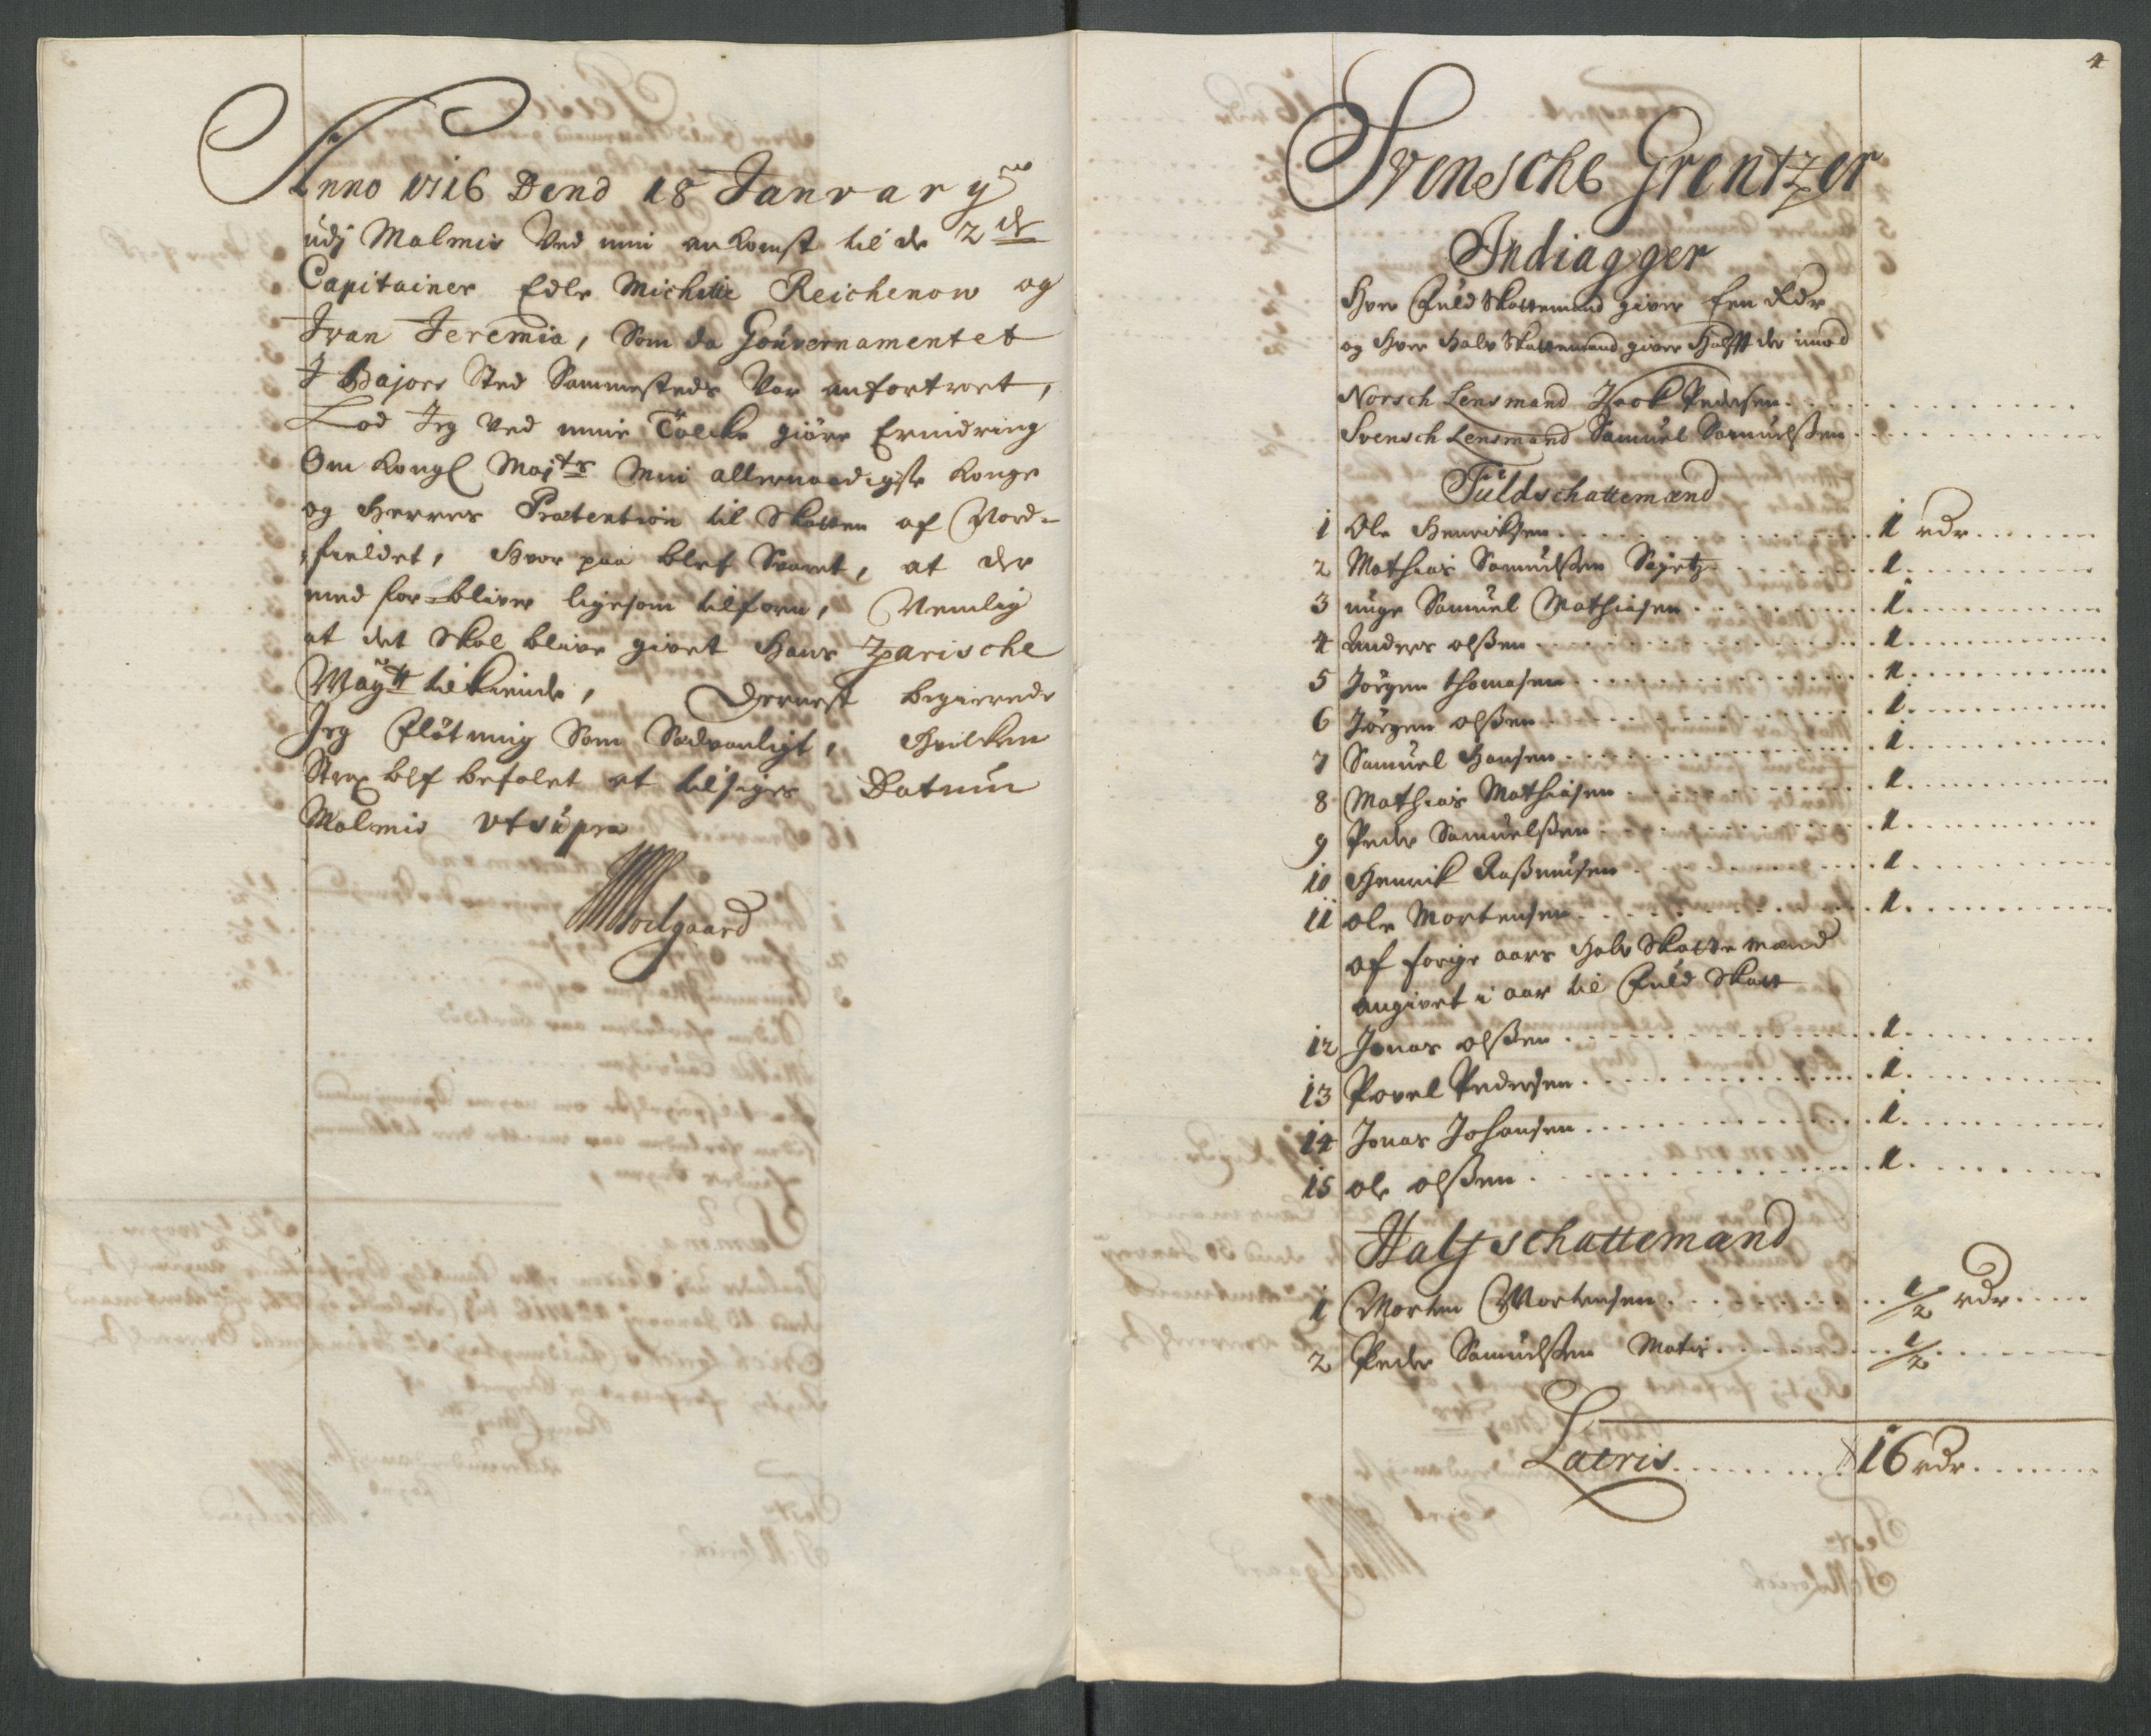 Anno 1716 Dend 18 Januarÿ
udj Malmis Ved min ankomst til de 2de
Capitainer Edle Michille Reichenow og
Ivan Jeremia, Som da Gouvernamentet
I Bajors Sted Sammesteds Var anfortroet,
Lod Jeg Ved min Tolcke giöre Erindring
Om Kongl Majts Min allernaadigste Konge
og Herres Prætention til Skatten af Nord-
fieldet, Hvor paa blef Svaret, at der
med for-bliver ligesom tilforn, Nemlig
at det Skal blive givet Hans Zarische
Maÿtt tilkiende, Dernest begierede
Jeg Flötning Som Sædvanligt, Hvilken
Strax blf befalet at tilsiges Datum
Malmis vtsupra
Soelgaard
4
Svensche Grentzer
Indiagger
Hver Fuld Skattemand giver Een Rdr
og Hver Halv Skattemand giver Halfft der imod
Norsch Lensmand Pedersen
Svensch Lensmand Samuel Samuelßen
Fuldschattemænd
1 Ole Henriksen 1 rdr
2 Mathias Samuelßen Sajetz 1
3 unge Samuel Mathiasen 1
4 Anders olßen 1
5 Jörgen thomasen 1
6 Jörgen olßen 1
7 Samuel Hansen 1
8 Mathias Mathiasen 1
9 Peder Samuelßen 1
10 Henrik Raßmusen 1
11 ole Mortensen 1
af forige aars Halv Skattemænd
angivet i aar til Fuld Skatt
12 Jonas olßen 1
13 Povel Pedersen 1
14 Jonas Johansen 1
15 ole olßen 1
Halfschattemænd
1 Morten Mortensen 1/2 rdr
2 Peder Samuelßen Matis 1/2
Lateris 16 rdr